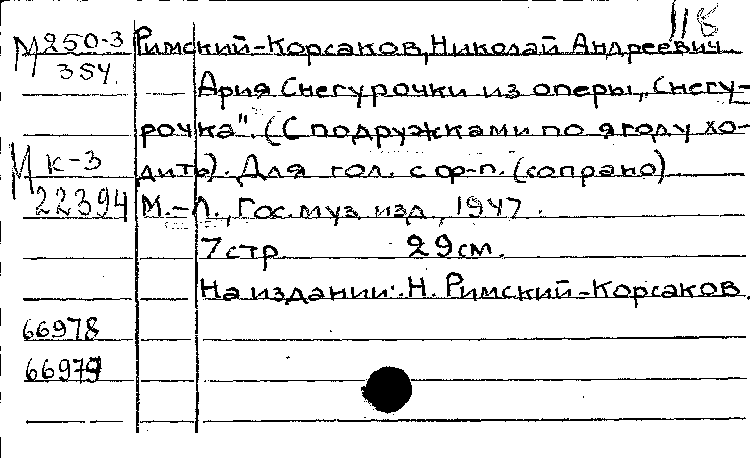 118
М 250-3 Римский-Корсаков, Николай Андреевич
354. Ария Снегурочки из оперы „Снегу-
рочка". (С подружками по ягоду хо-
М К-3 дить). Для гол. с ф-п. (сопрано)
22394 М.-Л., Гос. муз. изд., 1947.
7 стр. 29 см.
На издании: Н. Римский-Корсаков.
66978
66979